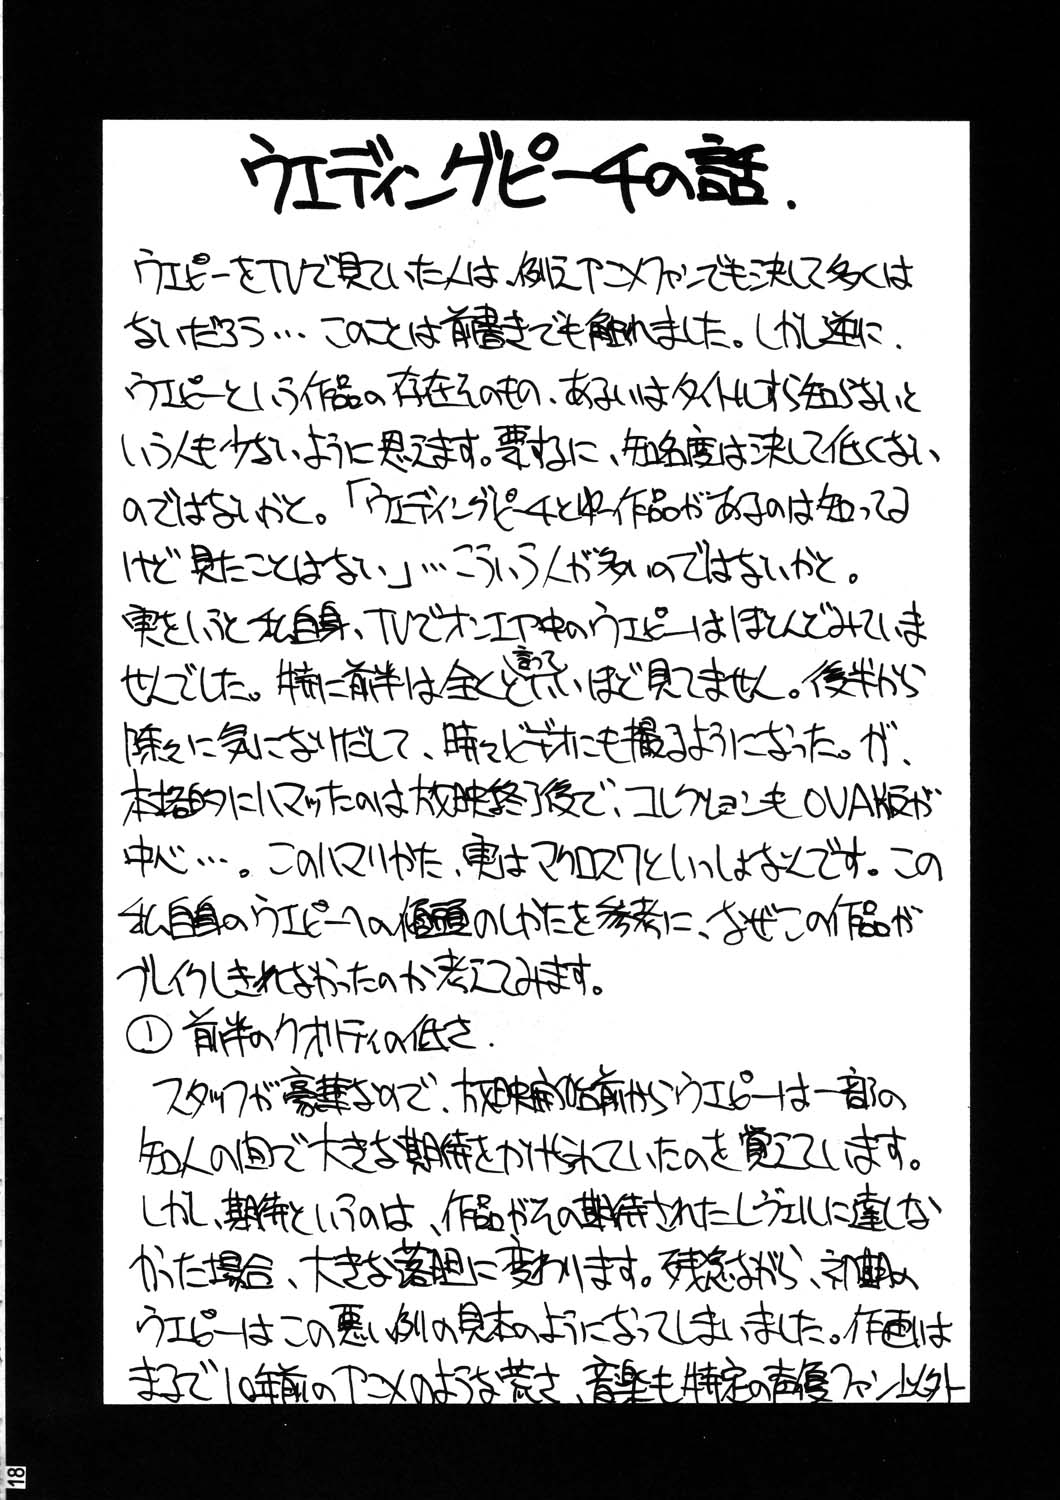 ウエディングピーチの話.
ウエピーをTVで見ていた人は、例えアニメファンでも決して多くは
ないだろう…このことは前書きでも触れました。しかし逆に、
ウエピーという作品の存在そのもの、あるいはタイトルすら知らないと
いう人も少ないように思えます。要するに、知名度は決して低くない
のではないかと。「ウエディングピーチとゆー作品があるのは知ってる
けど見たことはない」…こういう人が多いのではないかと。
実をいうと私自身、TVでオンエア中のウエピーはほとんどみていま
せんでした。特に前半は全くと言っていいほど見てません。後半から
除々に気になりだして、時々ビデオにも撮るようになった。が、
本格的にハマったのは放映終了後で、コレクションもOVA版が
中心…。このハマりかた、実はマクロス7といっしょなんです。この
私自身のウエピーへの傾頭のしかたを参考に、なぜこの作品が
ブレイクしきれなかったのか考えてみます。
① 前半のクオリティの低さ.
スタッフが豪華なので、放映開始前からウエピーは一部の
知人の間で大きな期待をかけられていたのを覚えています。
しかし、期待というのは、作品がその期待されたレヴェルに達しな
かった場合、大きな落胆に変わります。残念ながら、初期の
ウエピーはこの悪い例の見本のようになってしまいました。作画は
まるで10年前のアニメのような荒さ、音楽も特定の声優ファン以外
18